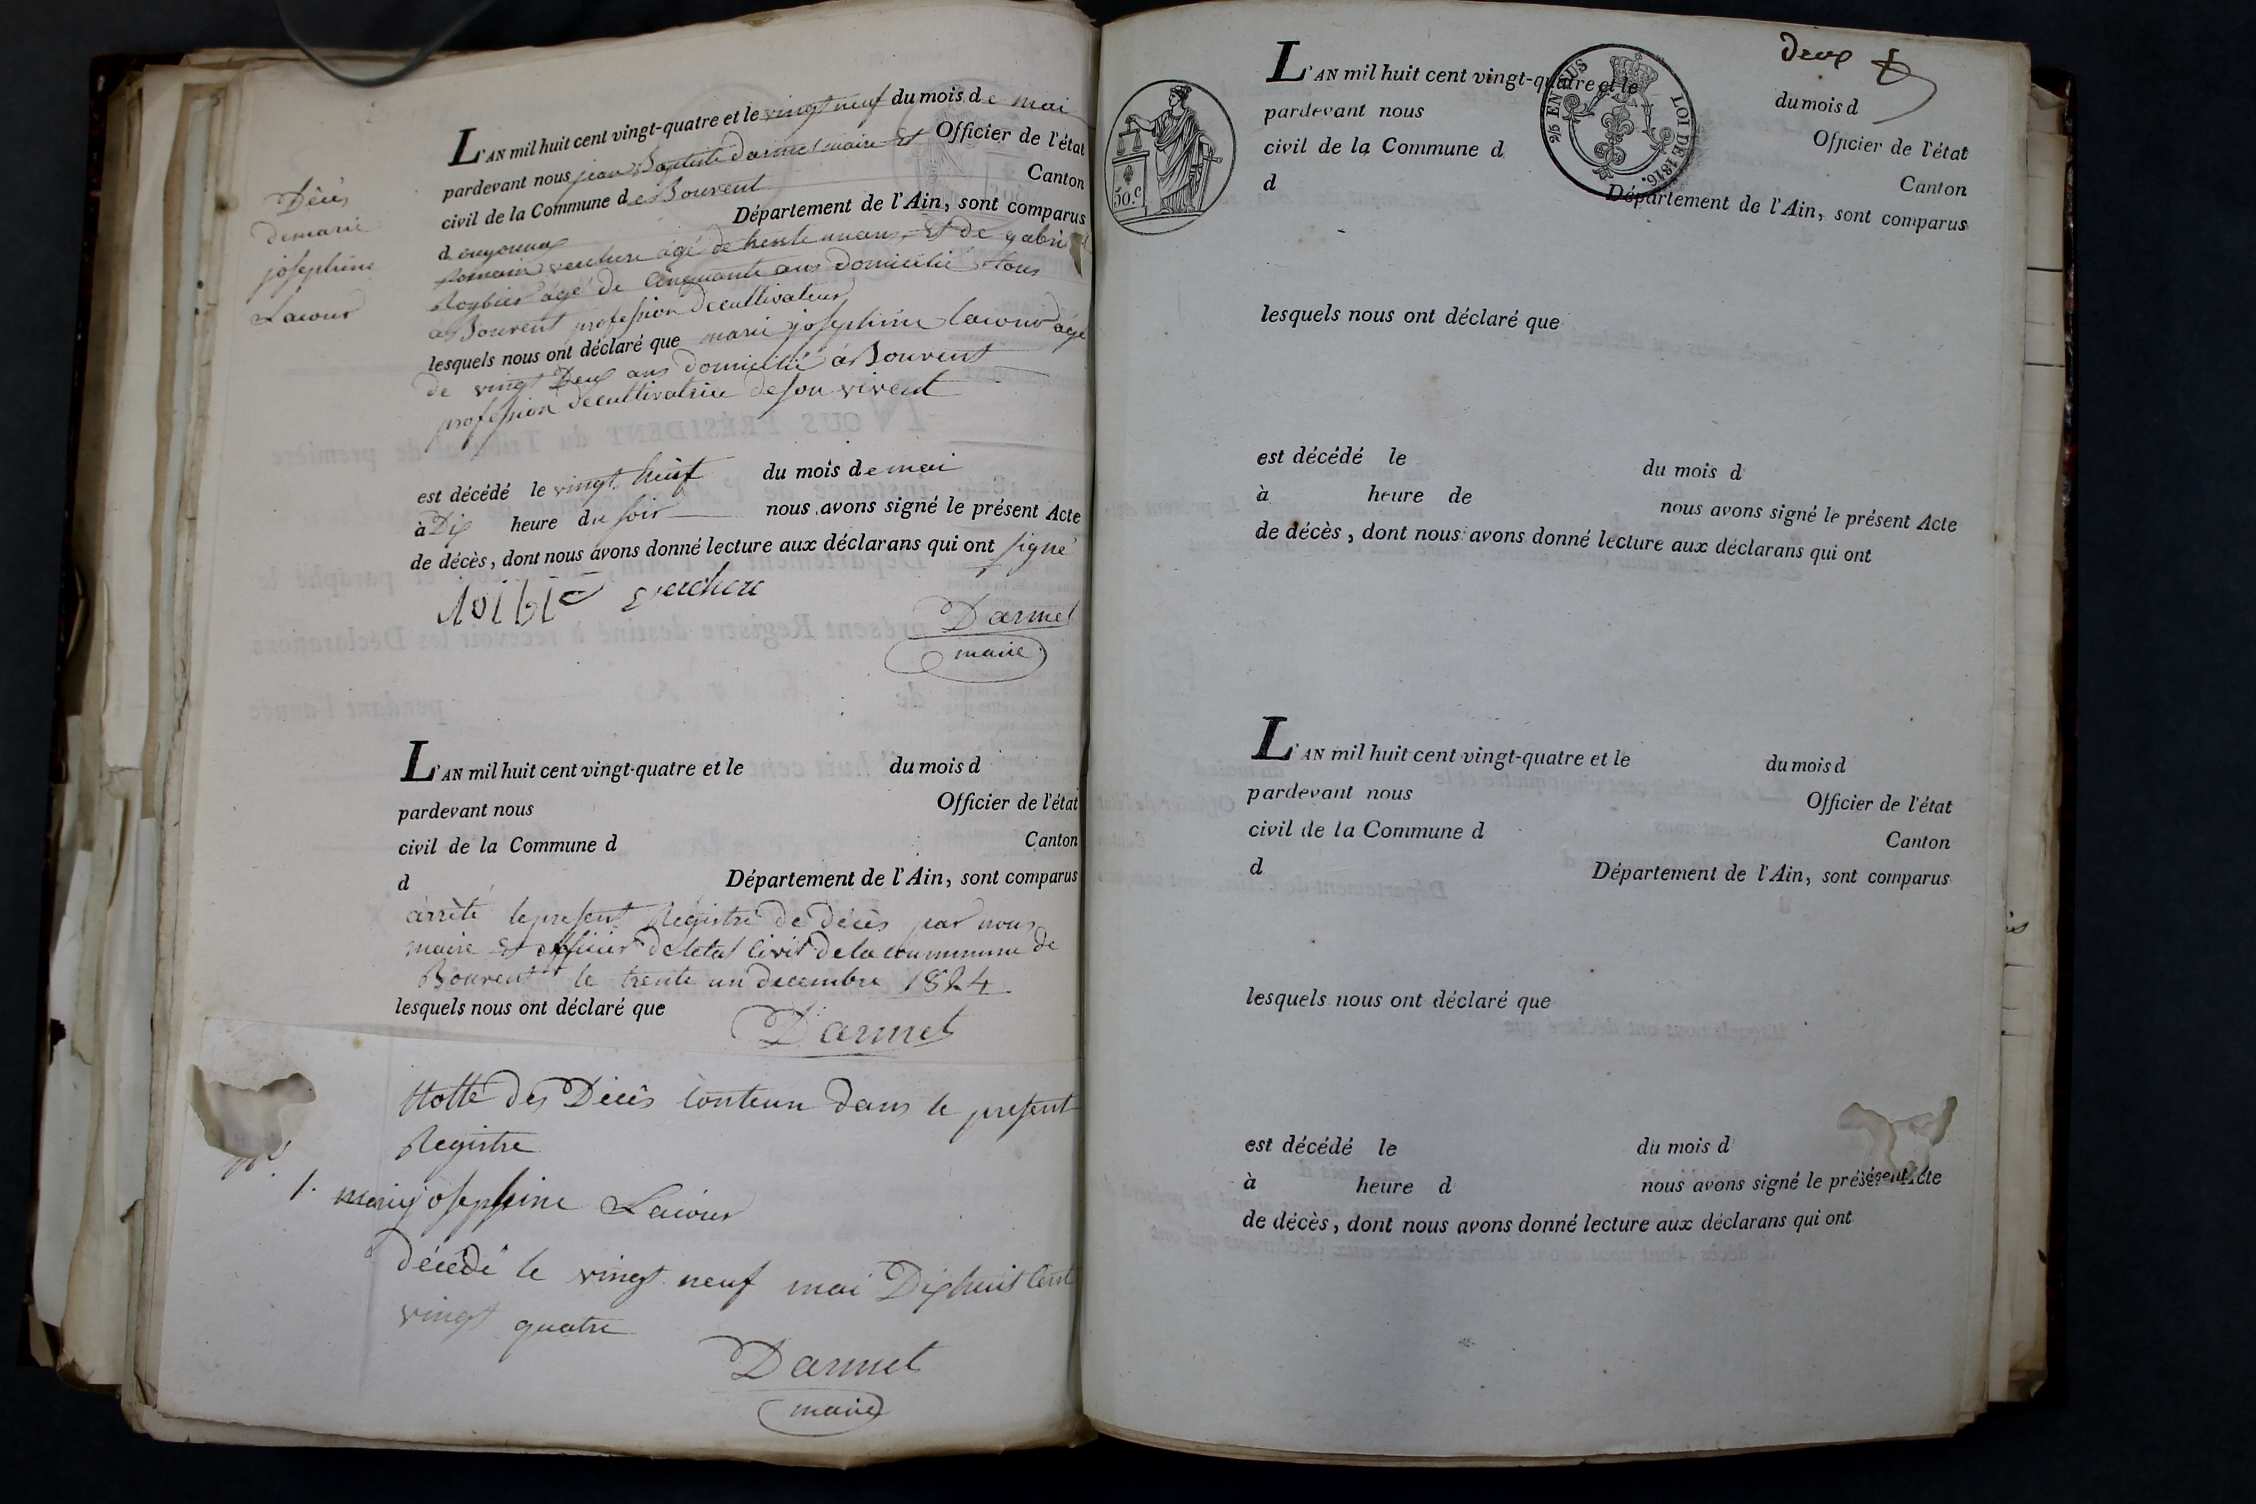 Décès
demarie
josephine
Lacour
L'AN mil huit cent vingt-quatre et le vingt neuf du mois de mai
pardevant nous jean Baptiste darmet maire et Officier de l'état
civil de la Commune de Bouvent Canton
d oyonnax Département de l'Ain, sont comparus
Romain verchere agé de trente un ans, Et de gabriel
Roybier agé de Cinquante ans domicilié tous
a Bouvent profession decultivateur
lesquels nous ont déclaré que marie josephine lacour agé
de vingt Deux ans domicilié á Bouvent
profession decultivatrice deson vivent
est décédé le vingt neuf du mois de mai
à Dix heure du soir nous avons signé le présent Acte
de décès, dont nous avons donné lecture aux déclarans qui ont signé
verchere
Darmet
maire
L'AN mil huit cent vingt-quatre et le du mois d
pardevant nous Officier de l'état
civil de la Commune d Canton
d Département de l'Ain, sont comparus
arrêté lepresent Registre de décès par nous
maire et officier deletat Civil delacommmune de
Bouvent le trente un decembre 1824
lesquels nous ont déclaré que
Darmet
Notte des Décès Contenu dans le present
Registre
1. marie josephine Lacour
décédé le vingt neuf mai Dixhuit Cent
vingt quatre
Darmet
maire
deux
50.c
2/5 EN SUS
LOI DE 1816.
L'AN mil huit cent vingt-quatre et le du mois d
pardevant nous Officier de l'état
civil de la Commune d Canton
d Département de l'Ain, sont comparus
lesquels nous ont déclaré que
est décédé le du mois d
à heure de nous avons signé le présent Acte
de décès, dont nous avons donné lecture aux déclarans qui ont
L'AN mil huit cent vingt-quatre et le du mois d
pardevant nous Officier de l'état
civil de la Commune d Canton
d Département de l'Ain, sont comparus
lesquels nous ont déclaré que
est décédé le du mois d
à heure d nous avons signé le présent Acte
de décès, dont nous avons donné lecture aux déclarans qui ont